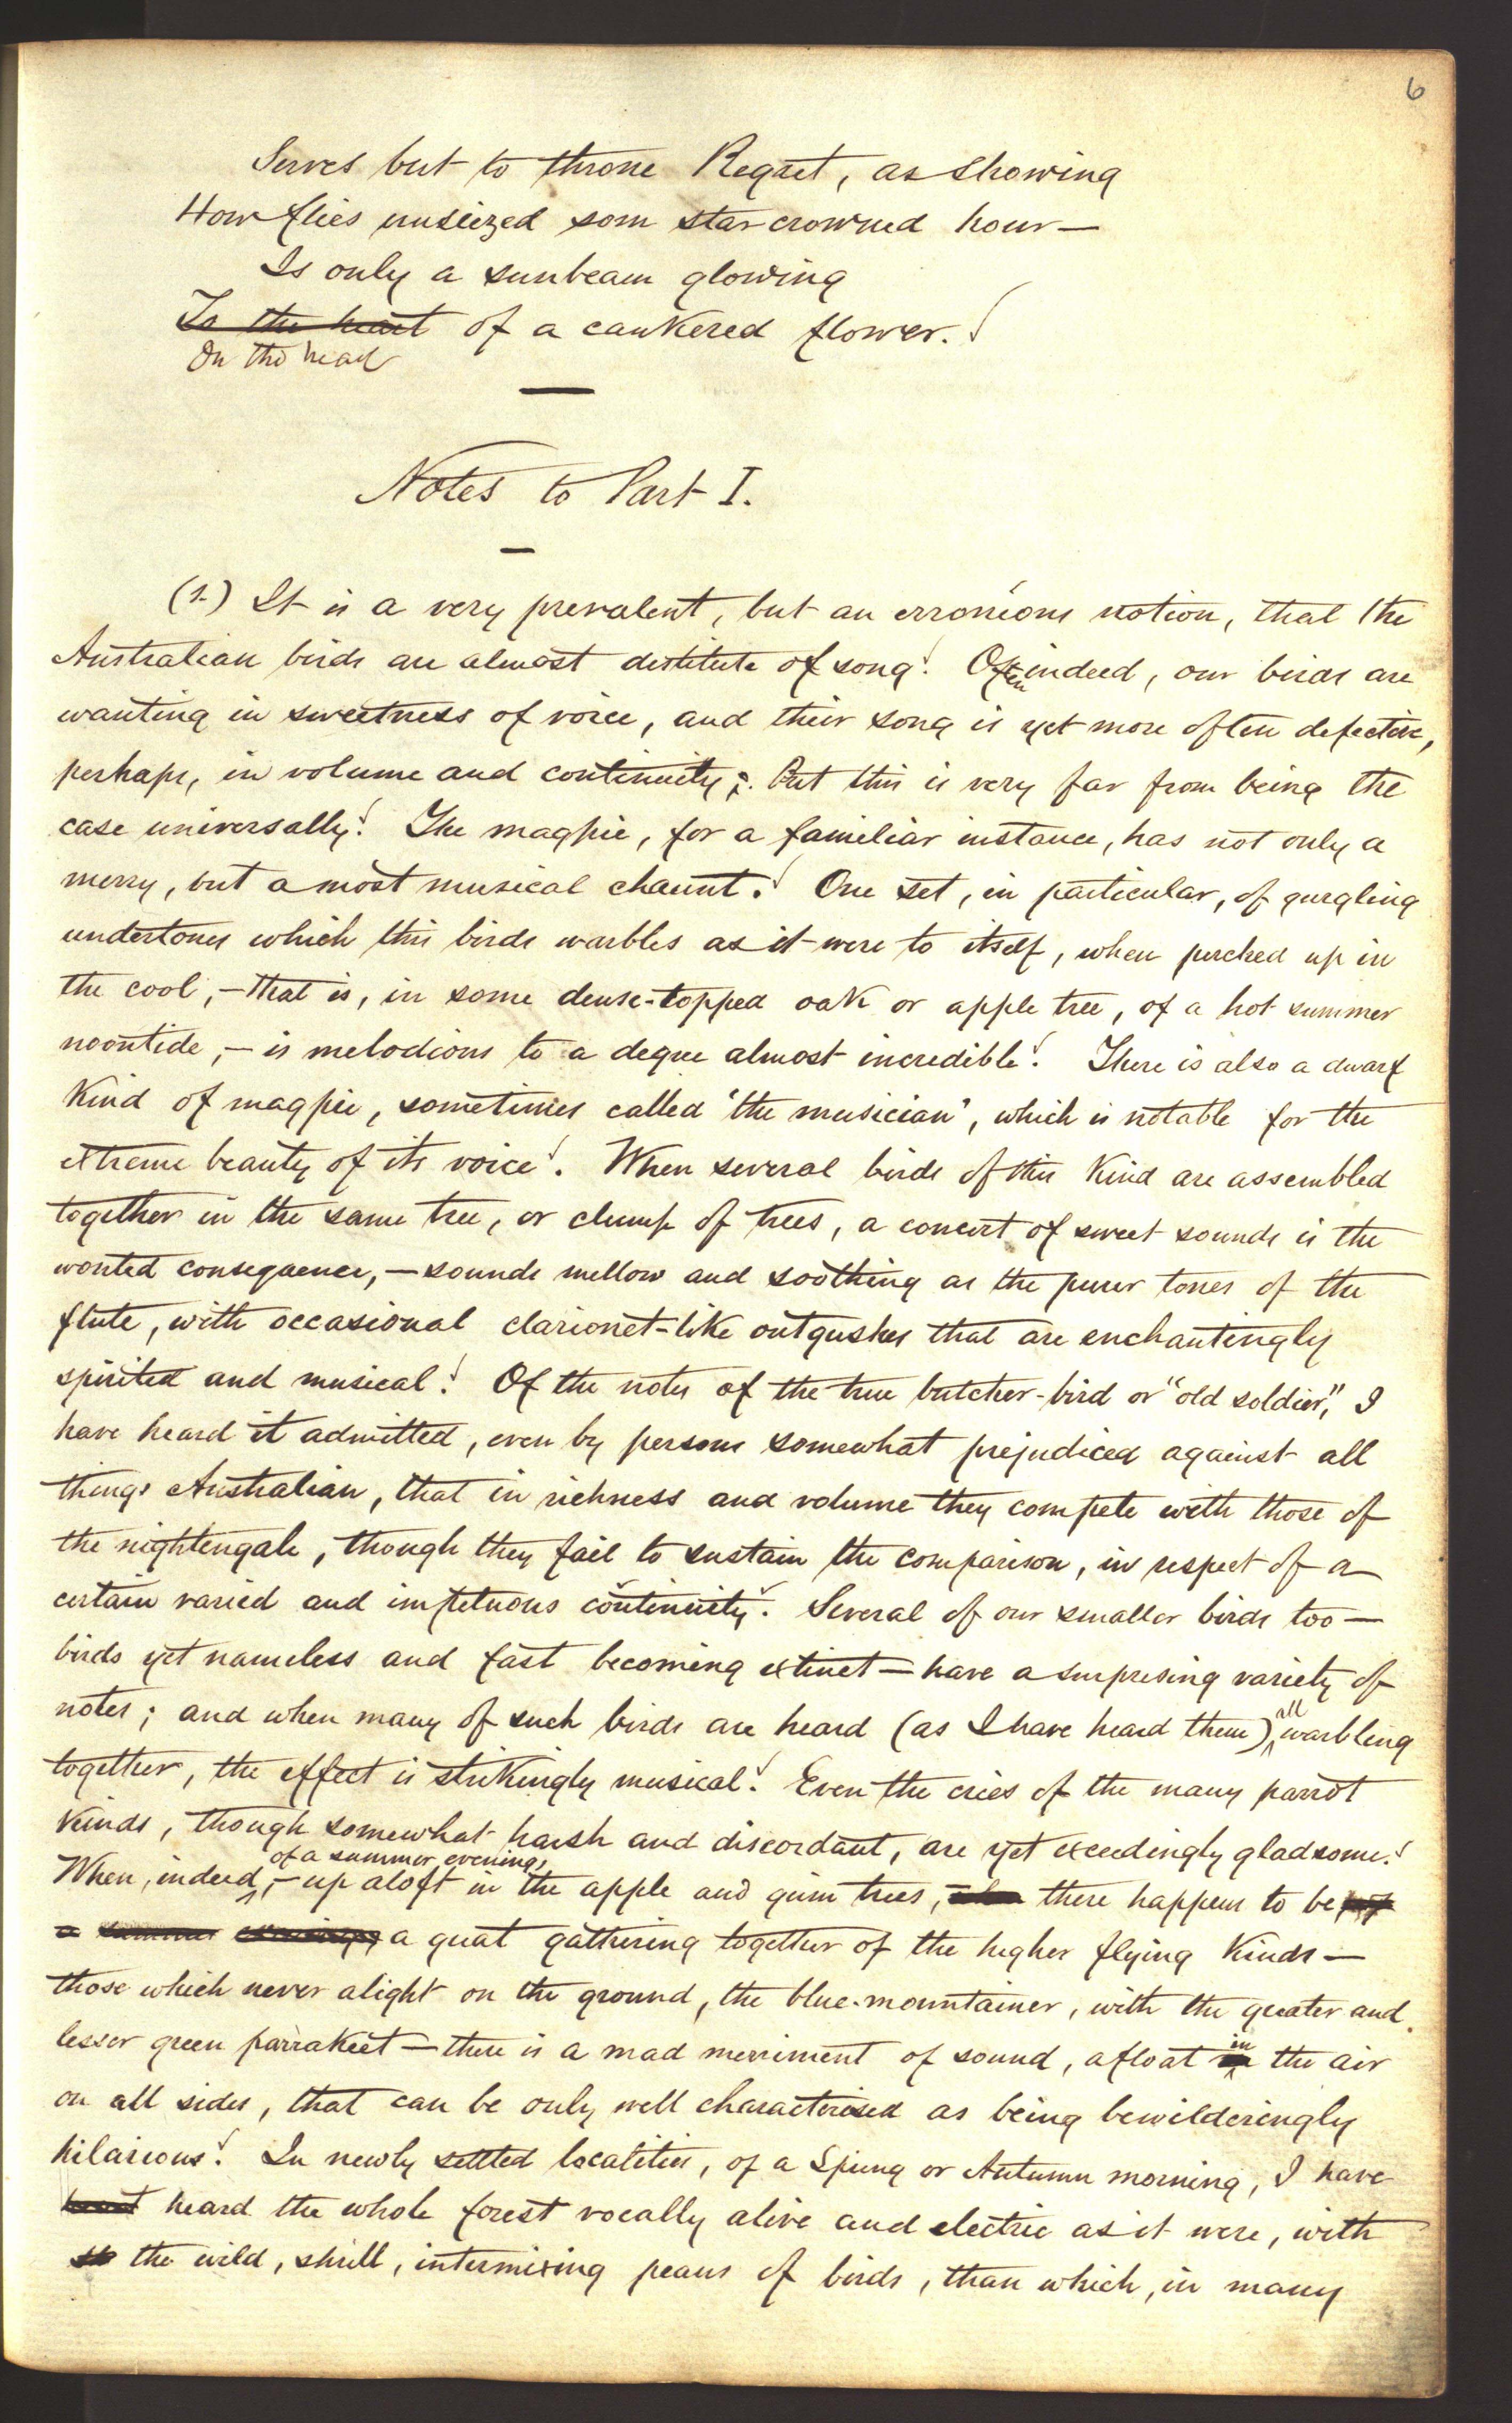 6
Serves but to throne Regret, as showing
How flies unseized som star-crowned hour —
Is only a sunbeam glowing
In the heart of a cankered flower.!
On the head
Notes to Part I.
(1.) It is a very prevalent, but an erroneous notion, that the
Australian birds are almost destitute of song! Often indeed, our birds are
wanting in sweetness of voice, and their song is yet more often defective,
perhaps, in volume and continuity;. But this is very far from being the
case universally! The magpie, for a familiar instance, has not only a
merry, but a most musical chaunt.! One set, in particular, of gurgling
undertones which this birds warbles as it were to itself, when perched up in
the cool, — that is, in some dense-topped oak or apple tree, of a hot summer
noontide, — is melodious to a degree almost incredible! There is also a dwarf
kind of magpie, sometimes called 'the musician', which is notable for the
extreme beauty of its voice! When several birds of this kind are assembled
together in the same tree, or clump of trees, a concert of sweet sounds is the
wonted consequence, — sounds mellow and soothing as the purer tones of the
flute, with occasional clarionet-like outgushes that are enchantingly
spirited and musical! Of the notes of the true butcher-bird or "old soldier", I
have heard it admitted, even by persons somewhat prejudiced against all
things Australian, that in richness and volume they compete with those of
the nightengale, though they fail to sustain the comparison, in respect of a
certain varied and impetuous continuity. Several of our smaller birds too —
birds yet nameless and fast becoming extinct — have a surprising variety of
notes; and when many of such birds are heard (as I have heard them) all warbling
together, the effect is strikingly musical! Even the cries of the many parrot
kinds, though somewhat harsh and discordant, are yet exceedingly gladsome.!
of a summer evening,
When, indeed, — up aloft in the apple and gum trees, there happens to be of
a summer evening, a great gathering together of the higher flying kinds —
those which never alight on the ground, the blue-mountainer, with the greater and
lesser green parrakeet — there is a mad merriment of sound, afloat in the air
on all sides, that can be only well characterised as being bewilderingly
hilarious! In newly settled localities, of a Spring or Autumn morning, I have
heard the whole forest vocally alive and electric as it were, with
the wild, shrill, intermixing peans of birds, than which, in many